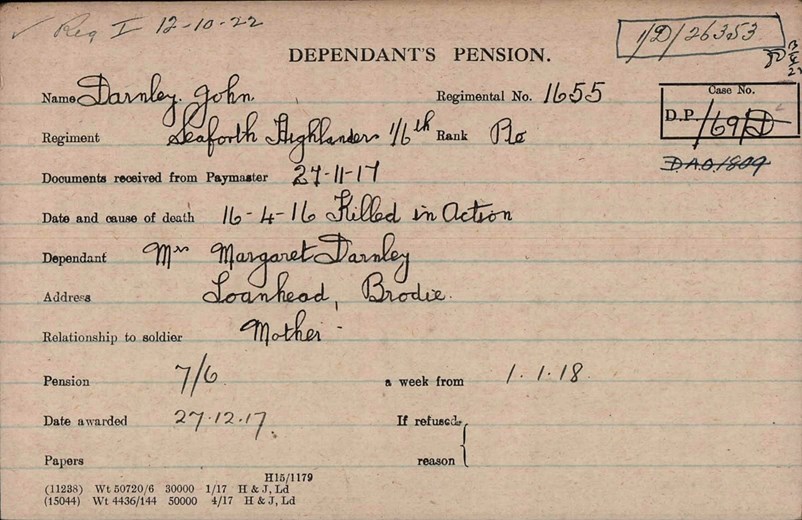 ✓ Reg I 12-10-22
1/D/26353
DEPENDANT'S PENSION.
Name Darnley. John. Regimental No. 1655
Case No.
D.P. /691/D
Regiment Seaforth Highlanders 1/6th Rank Pte
D.A.O./809
Documents received from Paymaster 27-11-17
Date and cause of death 16-4-16 Killed in Action
Dependant Mrs Margaret Darnley
Address Loanhead, Brodie.
Relationship to soldier Mother -
Pension 7/6 a week from 1.1.18.
Date awarded 27.12.17. If refused,
Papers reason
H15/1179
(11238) Wt 50720/6 30000 1/17 H & J, Ld
(15044) Wt 4436/144 50000 4/17 H & J, Ld